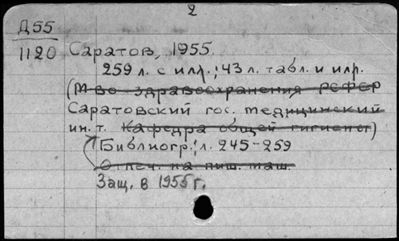 2
Д55
1120
Саратов, 1955.
259 л. с илл.; 43 л. табл. и илл.
(М-во здравоохранения РСФСР
Саратовский гос. медицинский
ин. т. Кафедра общей гигиены)
Библиогр.: л. 245-259
Отпеч. на пиш. маш.
Защ. в 1955 г.